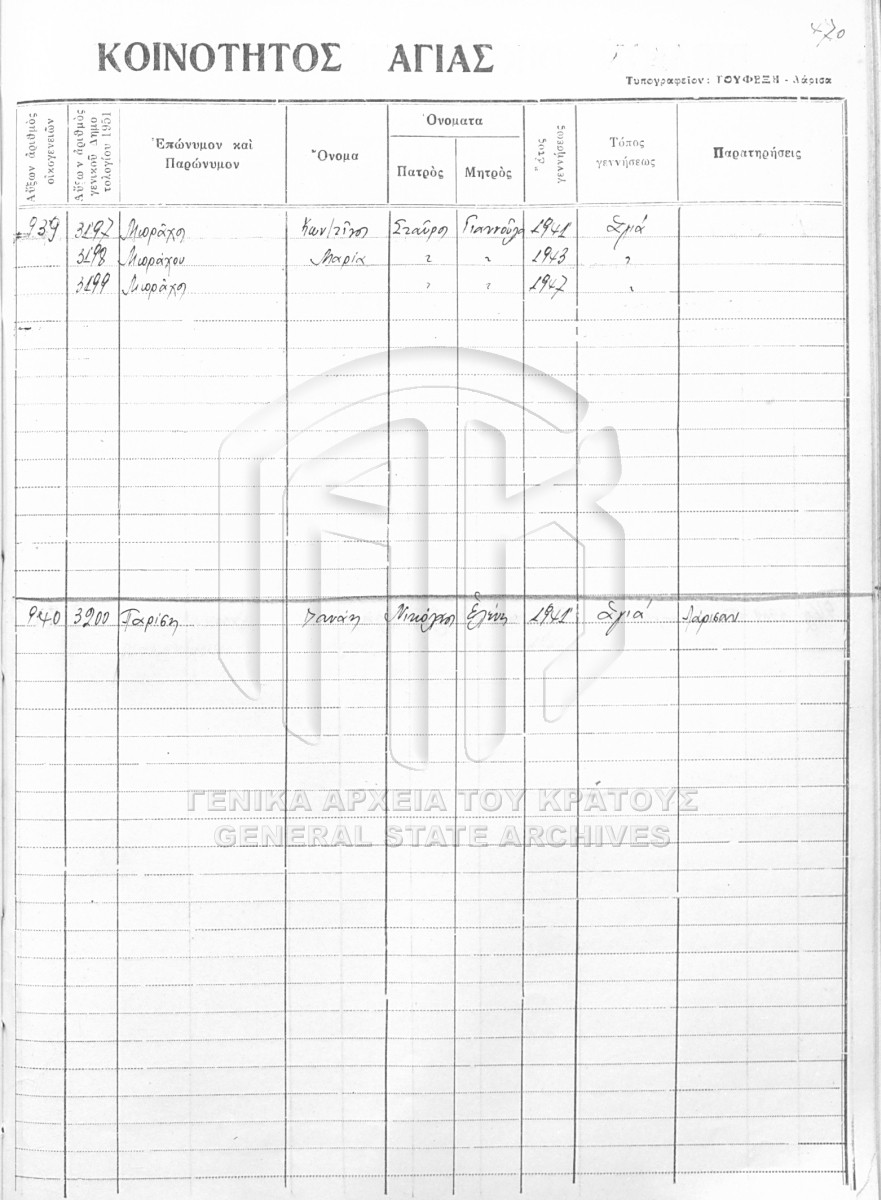 470
ΚΟΙΝΟΤΗΤΟΣ ΑΓΙΑΣ
Τυπογραφεῖον: ΓΟΥΦΕΞΗ - Λάρισα
Αὔξων ἀριθμὸς οἰκογενειῶν
Αὔξων ἀριθμὸς γενικοῦ Δημοτολογίου 1951
Ἐπώνυμον καὶ Παρώνυμον
Ὄνομα
Ὀνοματα
Πατρὸς
Μητρὸς
Ἔτος γεννήσεως
Τόπος γεννήσεως
Παρατηρήσεις
939 3197 Κων/τῖνος Σταῦρος Γιαννούλα 1941 Ἁγιά
3198 Μαρία " " 1943 "
3199 " " 1947 "
940 3200 Παρίση Δανάη Νικόλαος Ἑλένη 1941 Ἁγιά Λάρισαν
ΓΕΝΙΚΑ ΑΡΧΕΙΑ ΤΟΥ ΚΡΑΤΟΥΣ
GENERAL STATE ARCHIVES